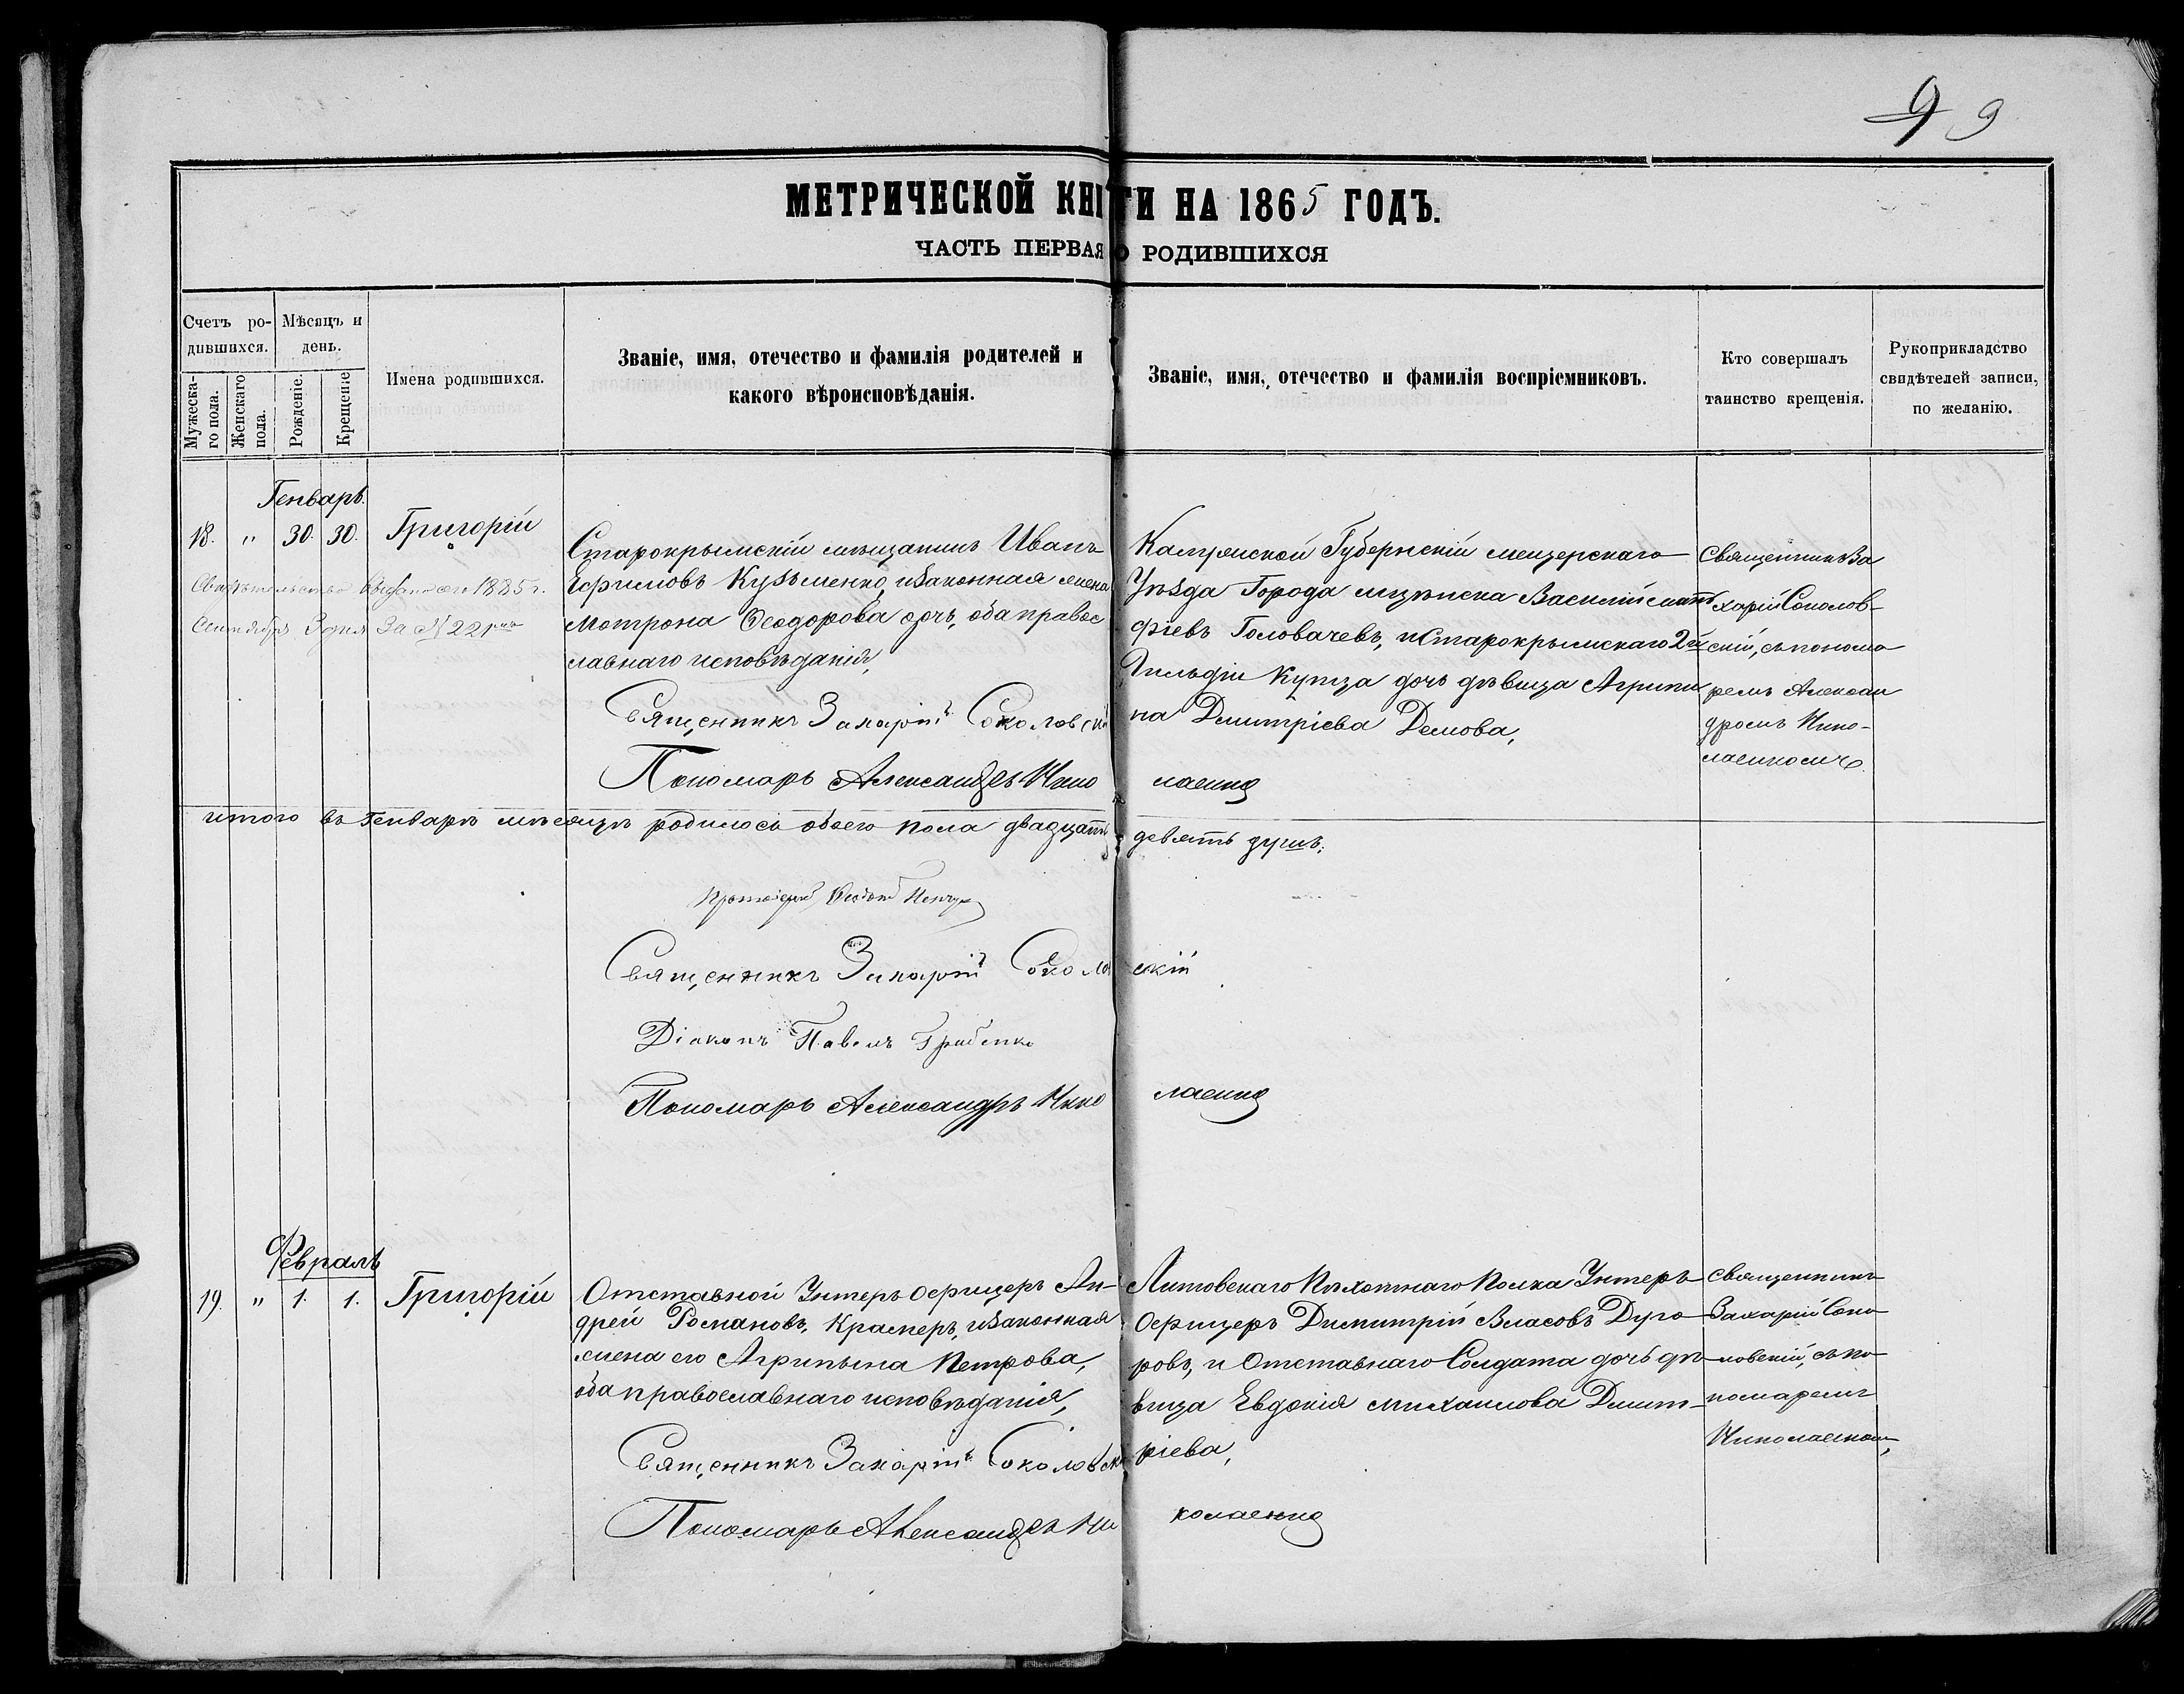 9 9
МЕТРИЧЕСКОЙ КНИГИ НА 1865 ГОДЪ.
ЧАСТЬ ПЕРВАЯ О РОДИВШИХСЯ
Счетъ ро-
дившихся.
Мужеска-
го пола.
Женскаго
пола.
Мѣсяцъ и
день.
Рожденіе.
Крещеніе
Имена родившихся.
Званіе, имя, отечество и фамилія родителей и
какого вѣроисповѣданія.
Званіе, имя, отечество и фамилія воспріемниковъ.
Кто совершалъ
таинство крещенія.
Рукоприкладство
свидѣтелей записи,
по желанію.
Генварь.
18. " 30. 30. Григорій
Свидѣтельство выдано 1885 г.
Сентября 3 дня За № 221
Старокрымскій мѣщанинъ Иванъ
Ефимовъ Кузьменко, изаконная жена
Мотрона Ѳеодорова дочь, оба правос
лавнаго исповѣданія,
Священникъ Захарій Соколовскій
Пономарь Александръ Николаенко
Губерніи мещерскаго
Уѣзда Города Василій Мат
фіевъ Головачевъ, иСтарокрымскаго 2й
Гильдіи Купца дочь дѣвица Агрипи
на Дмитріева Демова,
Священникъ За
харій Соколов-
скій, съ понома
ремъ Алексан
дромъ Нико-
лаенкомъ.
итого въ Генварѣ мѣсяцѣ родилось обоего пола двадцать девять душъ;
Протоіерей
Священникъ Захарій Соколовскій
Діаконъ Павелъ Гриденко
Пономарь Александръ Николаенко
Февраль
19. " 1. 1. Григорій
Отставной Унтеръ офицеръ Ан-
дрей Романовъ, Крамеръ, изаконная
жена его Агрипына Петрова,
оба православнаго исповѣданія,
Священникъ Захарій Соколовскій
Пономарь Александръ Николаенко
Литовскаго Пѣхотнаго Полка Унтеръ
Офицеръ Димитрій Власовъ Дуго
ровъ, и Отставнаго Солдата дочь дѣ
вица Евдокія Михаилова Дмит-
ріева,
Священникъ
Захарій Соко
ловскій, съ по
номаремъ
Николаенком,